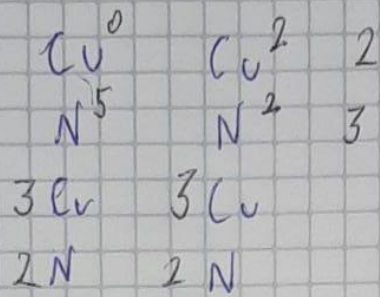 Cu⁰ Cu² 2
N⁵ N² 3
3 Cu 3 Cu
2 N 2 N